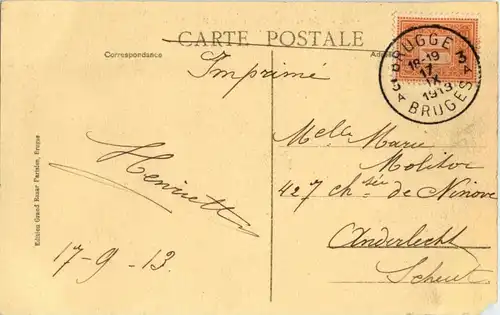 CARTE POSTALE
Correspondance
Imprimé
Henriette
17-9-13.
Edition Grand Bazar
BRUGGE 3A
18-19
17
IX
1913
3A BRUGES
Melle Marie
Molitor
427 chsée de Ninove
Anderlecht
Scheut